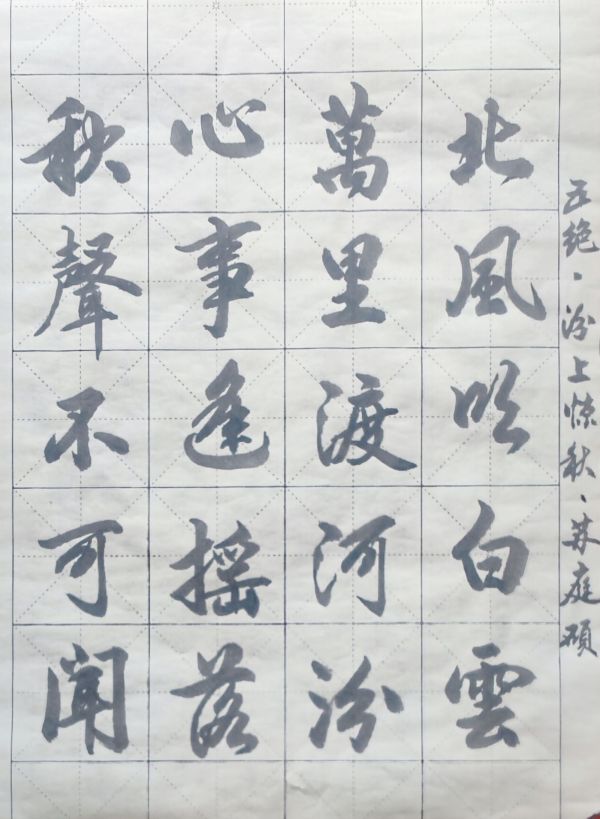 五绝、汾上惊秋、苏庭硕
北風吹白雲
萬里渡河汾
心事逢摇落
秋聲不可闻